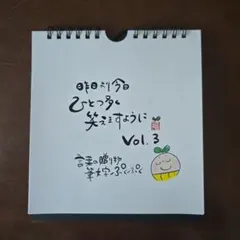 昨日より今日
ひとつ多く
笑えますように
Vol.3
言葉の贈り物
筆文字ぷくぷく